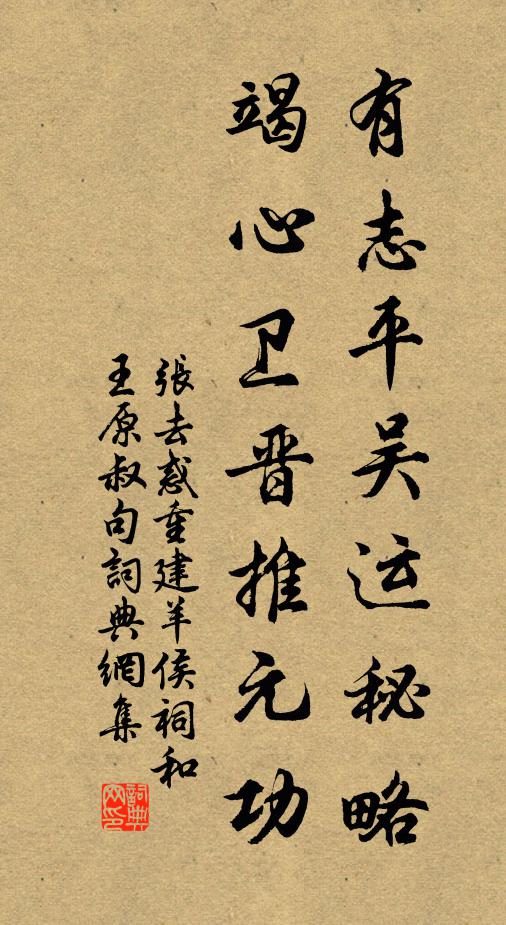 有志平吴运秘略
竭心卫晋推元功
張去惑重建羊侯祠和
王原叔句詞典網集
詞典
网印